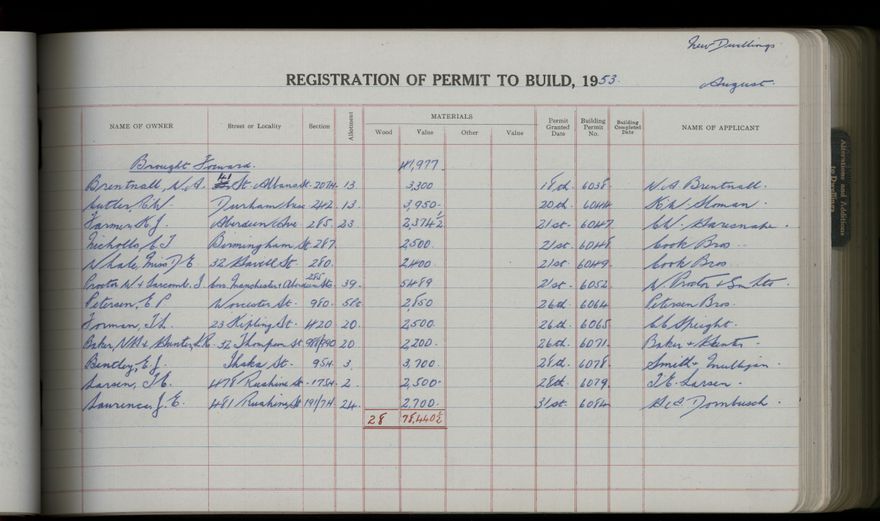 New Dwellings
REGISTRATION OF PERMIT TO BUILD, 1953.
August.
NAME OF OWNER Street or Locality Section Allotment MATERIALS Wood Value Other Value Permit Granted Date Building Permit No. Building Completed Date NAME OF APPLICANT
Brought Forward. 41,977
Brentnall, N.A. St. Albans St. 2074. 13. 3,300 18th. 6038. N.A. Brentnall.
Butler, C.W. Durham Ave 242. 13. 3,950. 20th. 6044 Sloman.
Farmer, K.J. Aberdeen Ave 285. 23. 2,374½ 21st. 6047.
Nicholls, E.J. Birmingham St. 287. 2500. 21st. 6048. Cook Bros.
Whale, Miss D.E. 32 St. 280. 2400. 21st. 6049. Cook Bros
Proctor W & J. Cnr. Manchester & Aberdeen Sts. 285 39. 5489 21st. 6052 W Proctor & Son Ltd
Petersen, E.P Worcester St. 980. 2,850 26th. 6064 Petersen Bros.
Forman, 23 Kipling St. 420 20. 2,500. 26th. 6065. Speight.
Baker, & Hunter, 32 Thompson St. 20 2,200. 26th. 6071. Baker & Hunter.
Bentley, E.J. Ihaka St. 954. 3. 3,700. 28th. 6078. Smith & Mulligan.
Larsen, J.E. 478 Ruahine St. 1754. 2. 2,500. 28th. 6079. J.E. Larsen.
Lawrence, J.E. 481 Ruahine St 191/74 24. 2,700. 31st. 6084. Dombusch.
28 78,440½
Alterations and Additions
to Dwellings